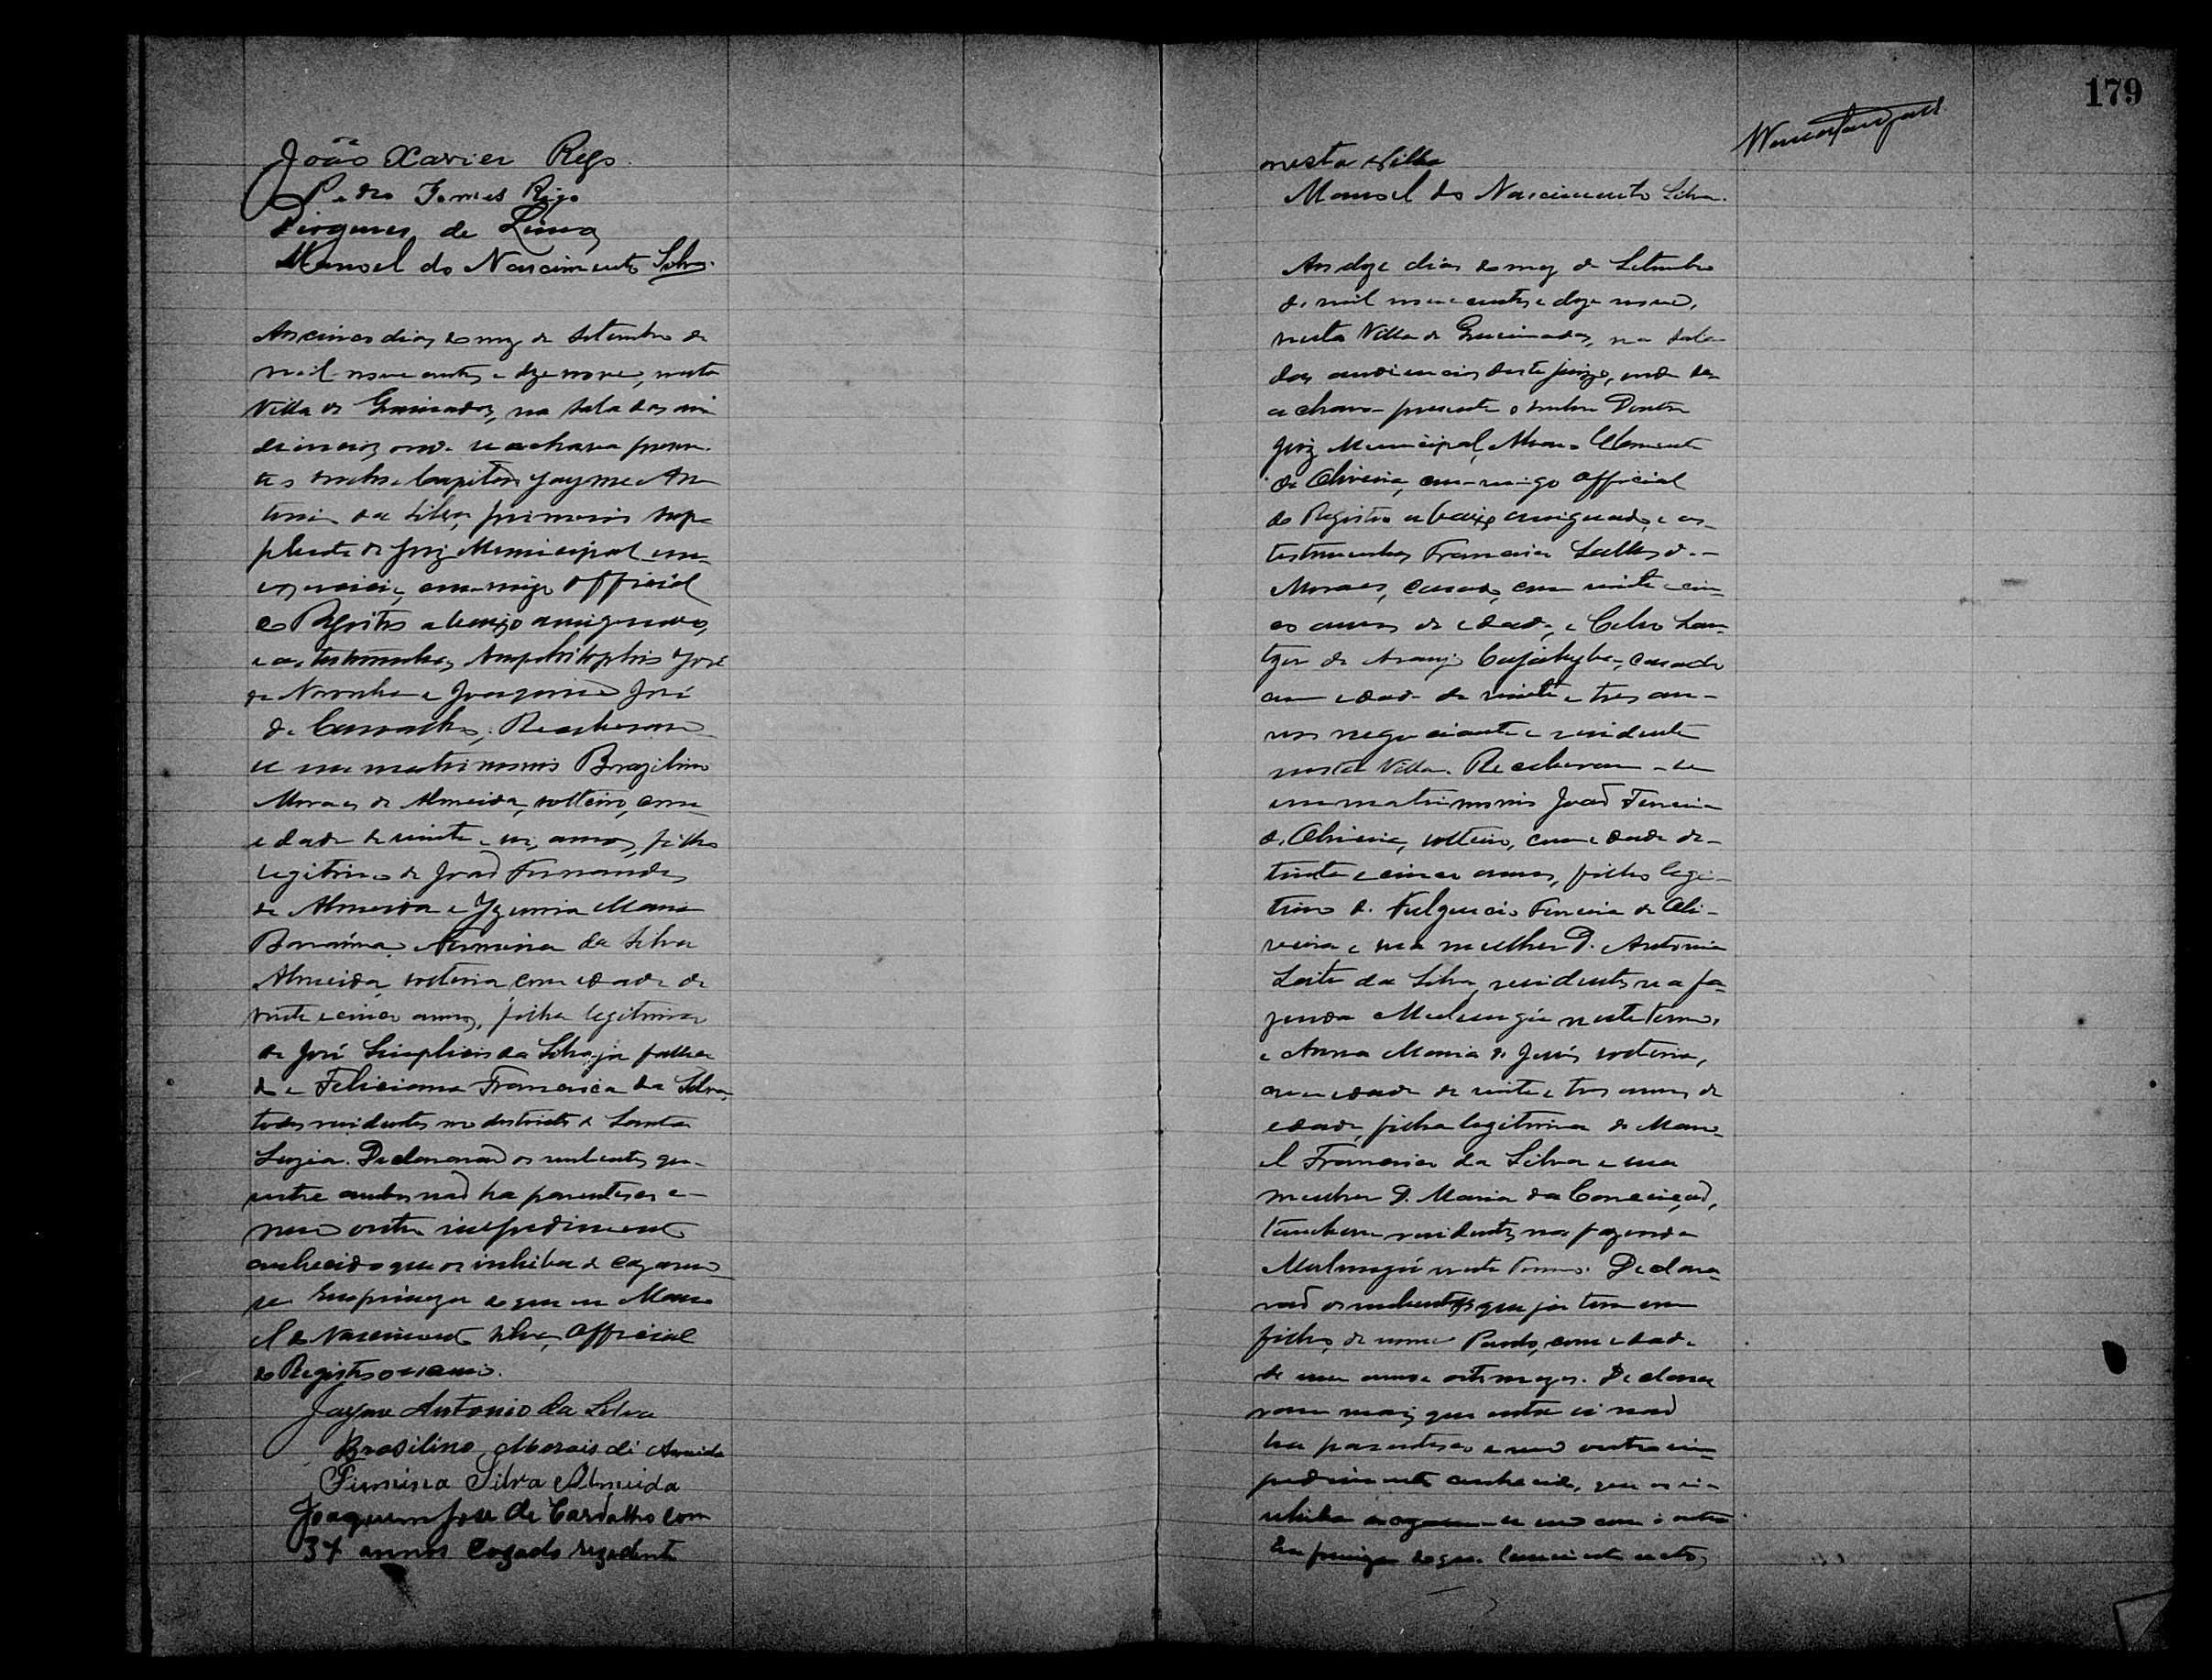 João Xavier Rego
Pedro Gomes Rego
Diogenes de Lima
Manoel do Nascimento Silva.
Aos cinco dias do mez de Setembro de
mil nove centos e dezenove, nesta
Villa de Queimadas, na sala das au
diencias onde se achava presen
te o senhor Capitão Jayme An
tonio da Silva, primeiro sup
plente de Juiz Municipal em
exercicio, commigo Official
do Registro abaixo assignado,
e as testemunhas Amphilophio José
de Noronha e Joaquim José
de Carvalho, Receberam
se em matrimonio Brazilino
Moraes de Almeida, solteiro, com
edade de vinte e seis annos, filho
legitimo de João Fernandes
de Almeida e Maria
Firmina da Silva
Almeida, solteira com edade de
vinte e cinco annos, filha legitima
de José Simplicio da Silva, ja falleci
do e Feliciana Francisca da Silva,
todos residentes no districto de Santa
Luzia. Declararão os nubentes que
entre ambos não ha parentesco e
nem outro impedimento
conhecido que os inhiba de cazarem
se. Em firmeza do que eu Mano
el do Nascimento Silva, Official
do Registro o escrevi.
Jayme Antonio da Silva
Brasilino Morais di Almeida
Firmina Silva Almeida
Joaquim Jose de Carvalho com
37 annos cazado rezidente
179
nesta Villa
Manoel do Nascimento Silva.
Aos doze dias do mez de Setembro
de mil nove centos e dezenove,
nesta Villa de Queimadas, na sala
das audiencias deste juizo, onde se
achava presente o senhor Doutor
Juiz Municipal, Clemente
de Oliveira, commigo Official
do Registro abaixo assignado, e as
testemunhas Francisco Salles de
Moraes, casado, com vinte e cin
co annos de edade, e Celso
de Araujo Cajahyba, casado
com edade de vinte e tres an
nos negociante e residente
nesta Villa. Receberam-se
em matrimonio João Ferreira
de Oliveira, solteiro, com edade de
trinta e cinco annos, filho legi
timo de Fulgencio Ferreira de Oli
veira e sua mulher D. Antonia
Leite da Silva, residentes na fa
zenda Mulungú neste termo,
e Anna Maria de Jesús solteira,
com edade de vinte e tres annos de
edade, filha legitima de Mano
el Francisco da Silva e sua
mulher D. Maria da Conceição,
tambem residentes na fazenda
Mulungú neste termo. Declara
rão os nubentes que ja tem um
filho, de nome com edade
de um anno e oito mezes. Declara
ram mais que entre si não
ha parentesco e nem outro im
pedimento conhecido, que os i
nhiba a cazarem-se um com o outro
Em firmeza do que